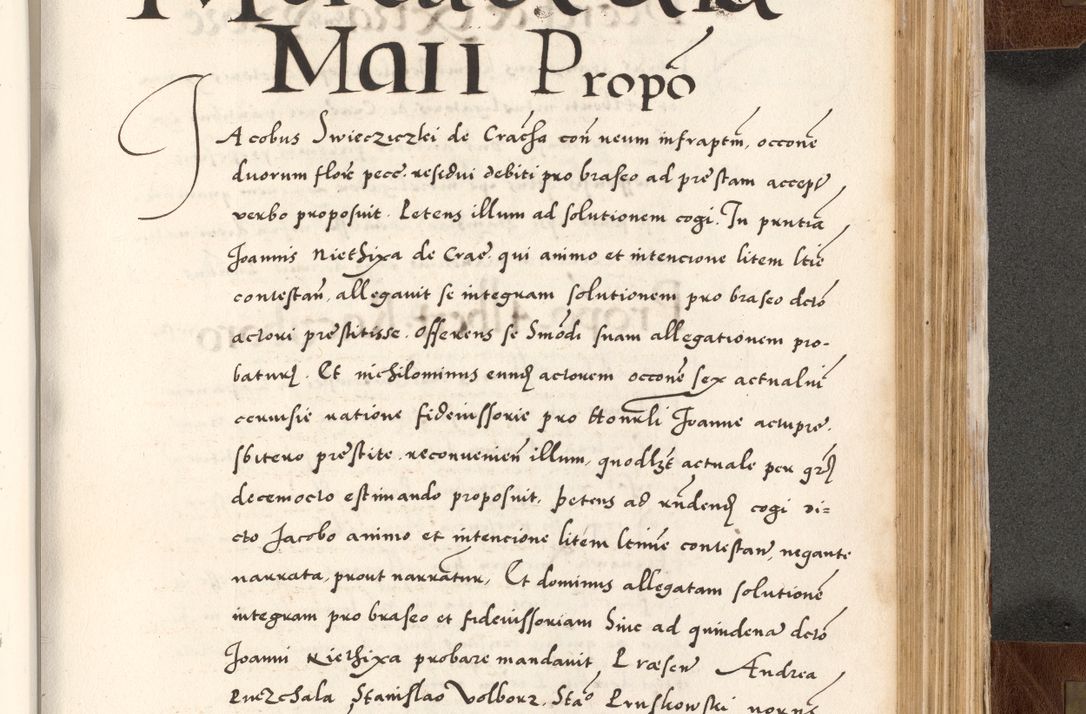 Maii Propō
Iacobus Swiecziczki de Cracȟa coñ reum infraptm̄, occonē
duorum floreñ pecc. residui debiti pro braseo ad prestam accepť
verbo proposuit. Petens illum ad solutionem cogi. In pñtia
Joannis Niethixa de Crac. qui animo et intencione litem ltiē
contestan̄, allegavit se integram solutionem pro braseo dcto
actori prestitisse. Offerens se Smodi suam allegationem pro-
baturũ. Et nichilominus eund actorem occone sex actualiũ
cerivisie ratione fideiussorie pro Honrli Joanne actupre.
sbitero prestite reconvenien̄ illum, quodlzt actuale per gr̄
decemocto estimando proposuit. Petens ad rñdend cogi di=
cto Jacobo animo et intencione litem ltiñie contestan, negante
narrata, prout narrātur, Et dominus allegatam solutionē
integram pro braseo et fideiussoriam Sinc ad quindena dcto
Joanni Niethixa probare mandavit Præsen Andrea
Puczchala Stanislao Volborz, Stāo Pruskowski